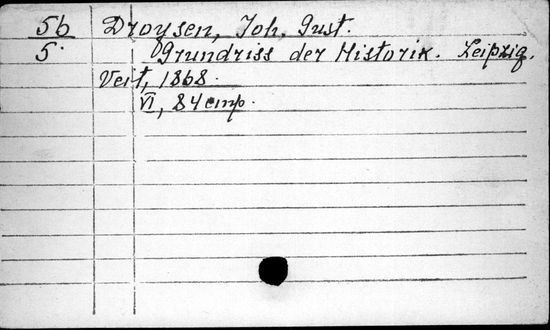 56 Droysen, Joh. Gust.
5. Grundriss der Historik. Leipzig.
Veit, 1868.
VI, 84 стр.